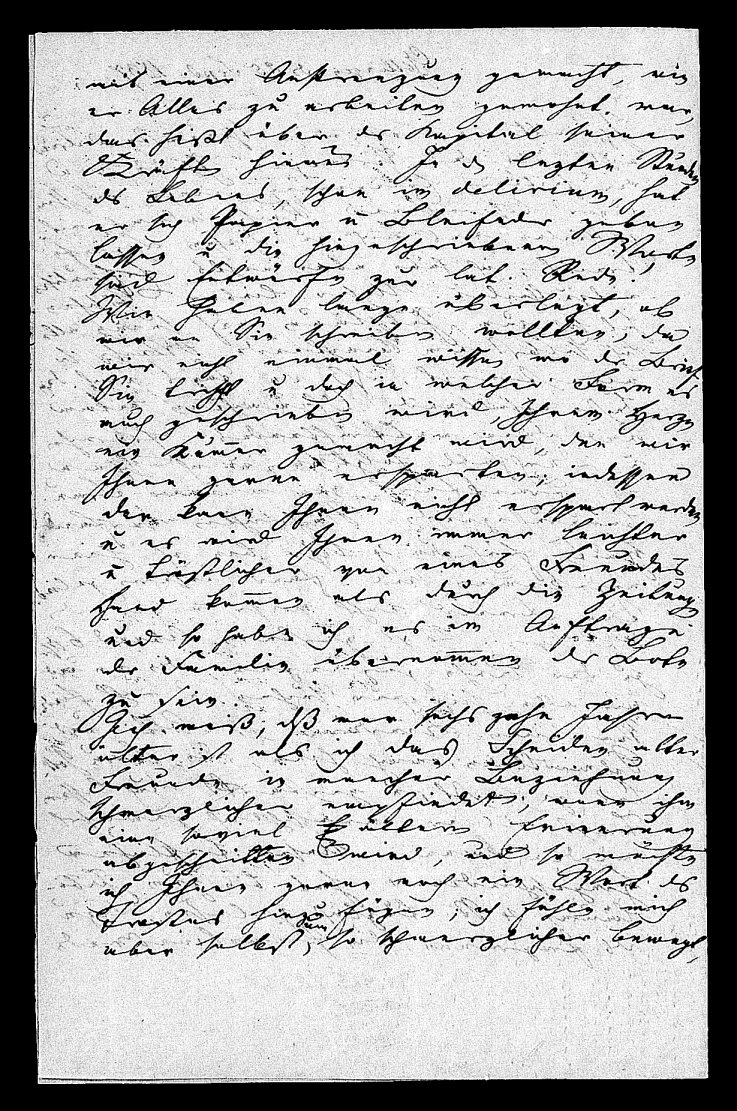 mit einer Anstrengung gemacht, wie
er Alles zu arbeiten gewohnt war,
das hieß über ds Kapital seiner
Kräfte hinaus. In d. lezten Stunden
ds Lebens, schon im delirium, hat
er sich Papier u Bleifeder geben
lassen u die hingeschriebenen Worte
sind Entwürfe zur lat. Rede.
Wir haben lange überlegt, ob
wir an Sie schreiben wollten, da
wir nicht einmal wissen wo dr Brief
Sie trifft u doch in welcher Form es
auch geschrieben wird, Ihrem Herzen
ein Kummer gemacht wird, den wir
Ihnen gerne ersparten; indessen
der kann Ihnen nicht erspart werden
u es wird Ihnen immer leichter
u tröstlicher von eines Freundes
Hand kommen als durch die Zeitungen
und so habe ich es im Auftrage
dr Familie übernommen dr Bote
zu sein.
Ich weiß, dß wer sechszehn Jahre
älter ist als ich das Scheiden alter
Freunde in mancher Beziehung
schmerzlicher empfindet, wenn ihm
eine soviel ältere Erinnerung
abgeschnitten wird, und so möchte
ich Ihnen gerne noch ein Wort ds
Trostes hinzufügen; ich fühle mich
aber selbst so schmerzlicher bewegt,